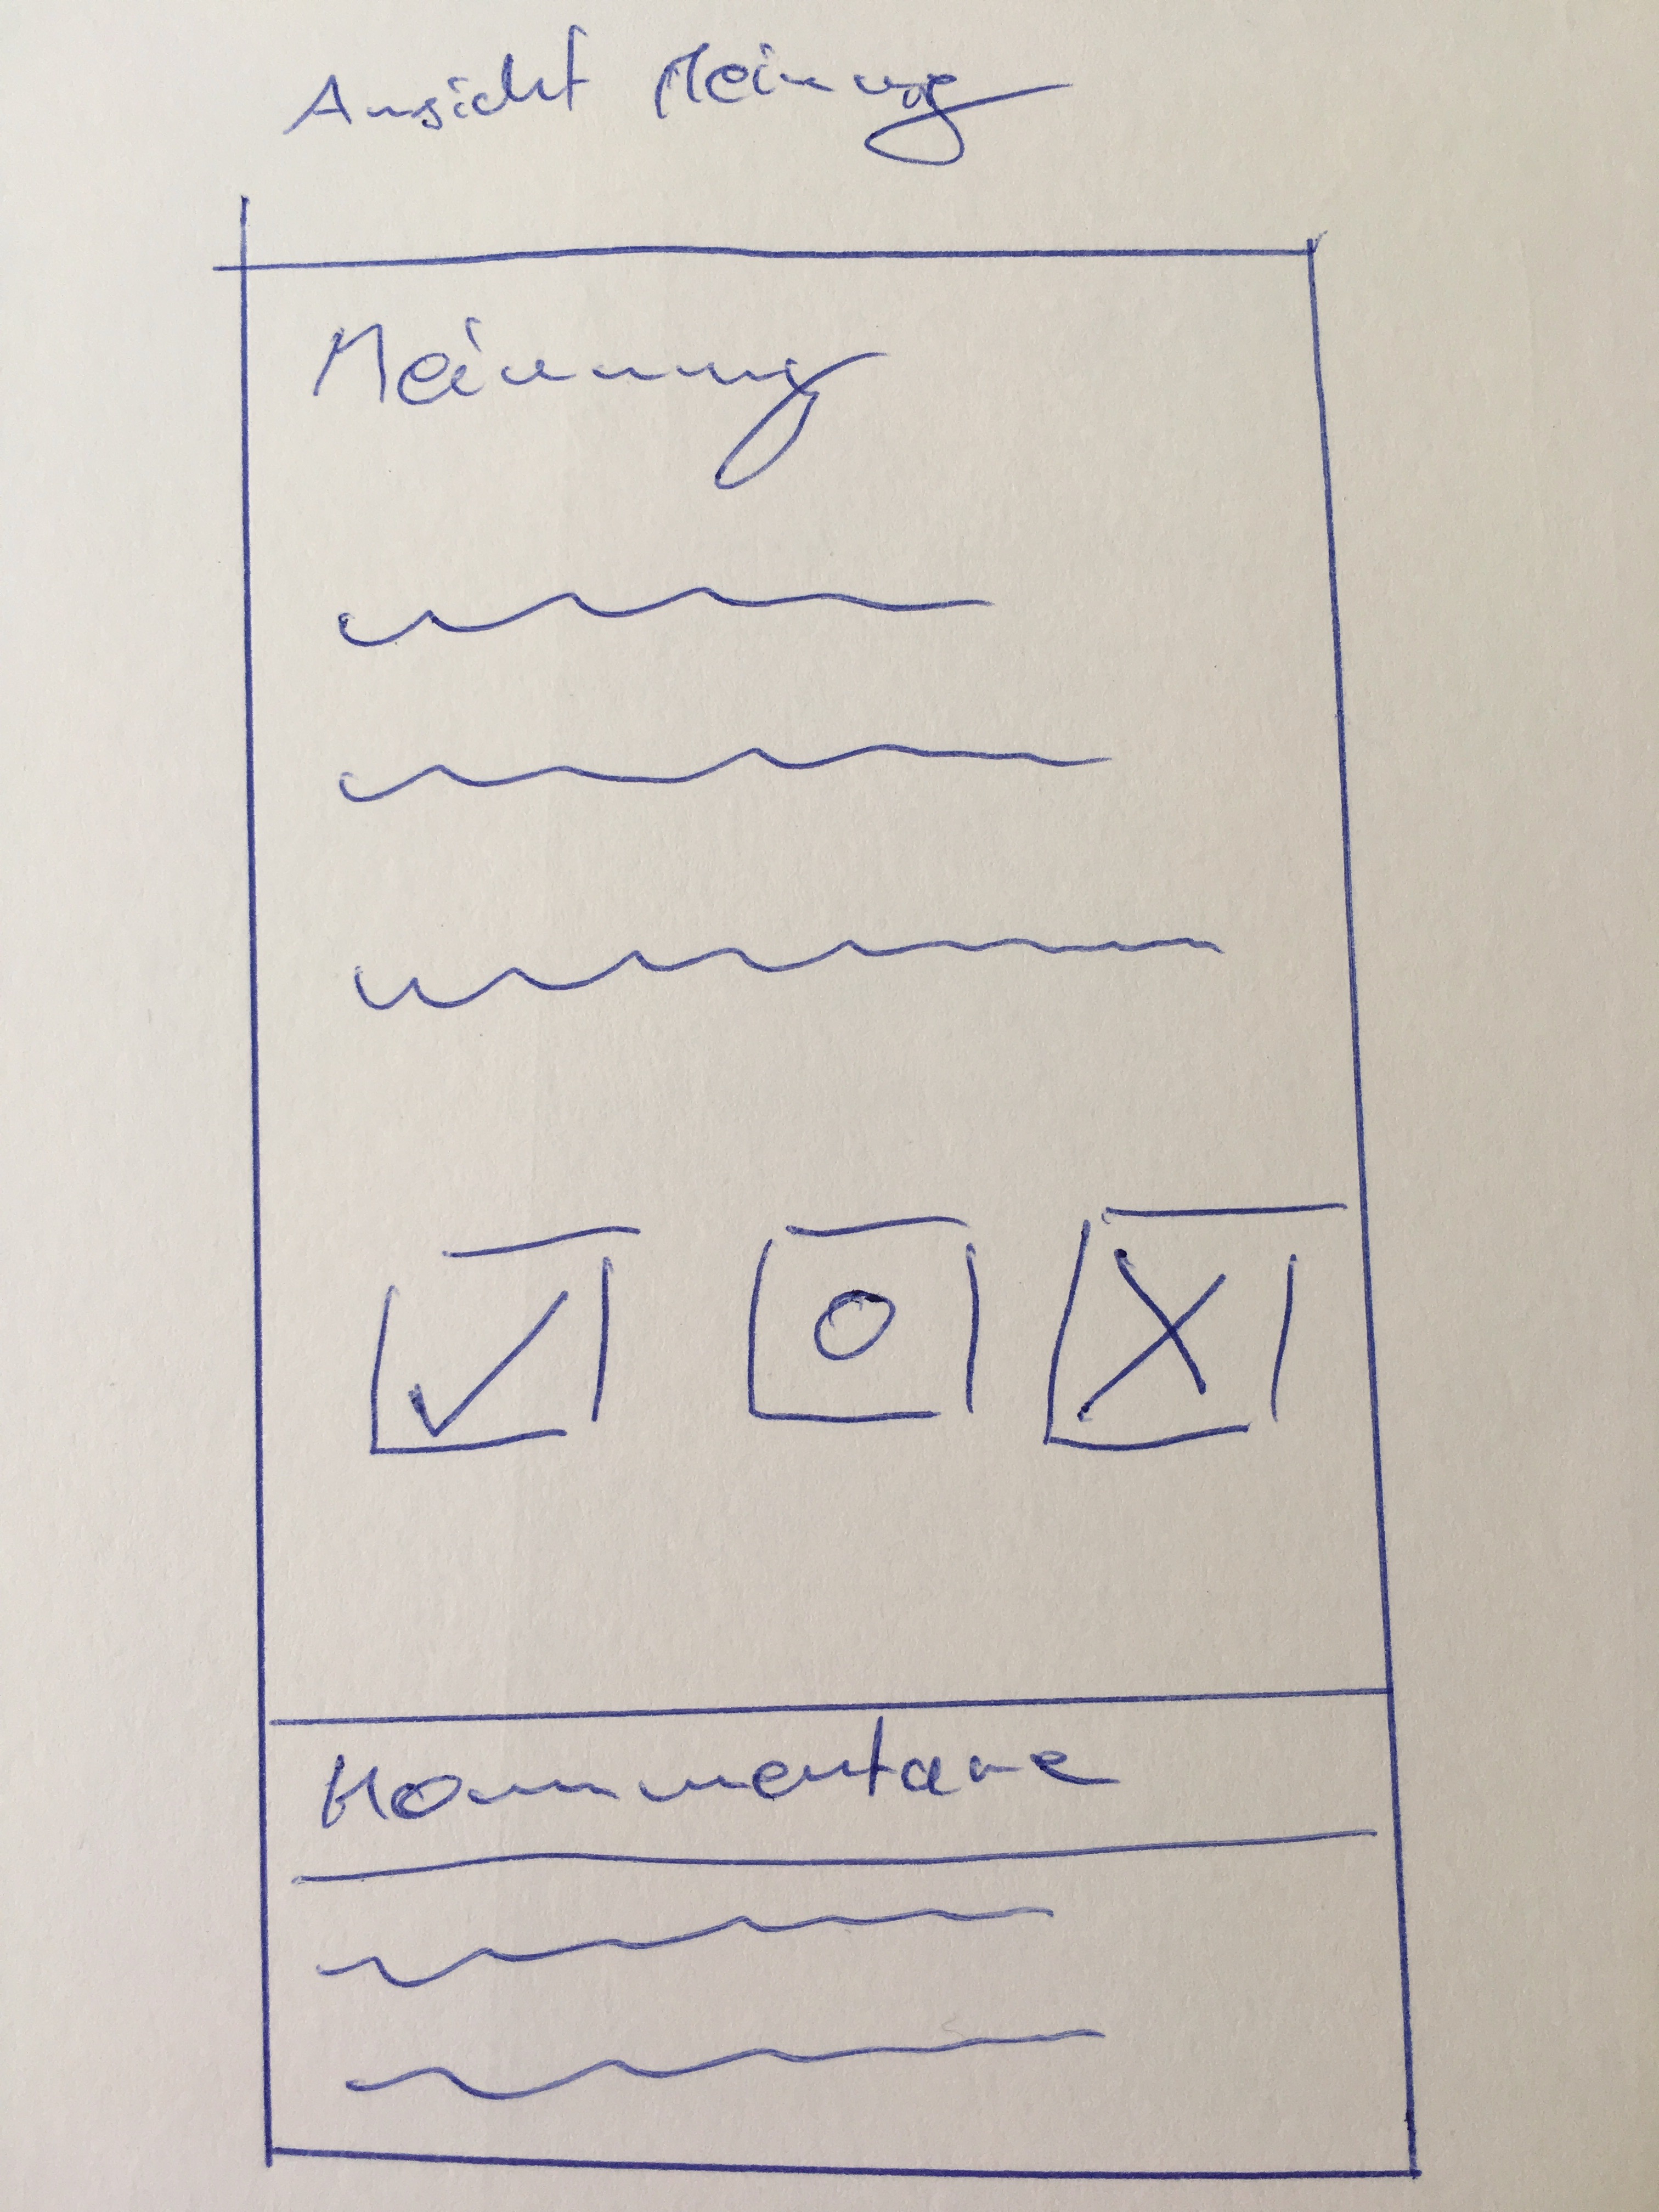 Ansicht Meinung
Meinung
Kommentare